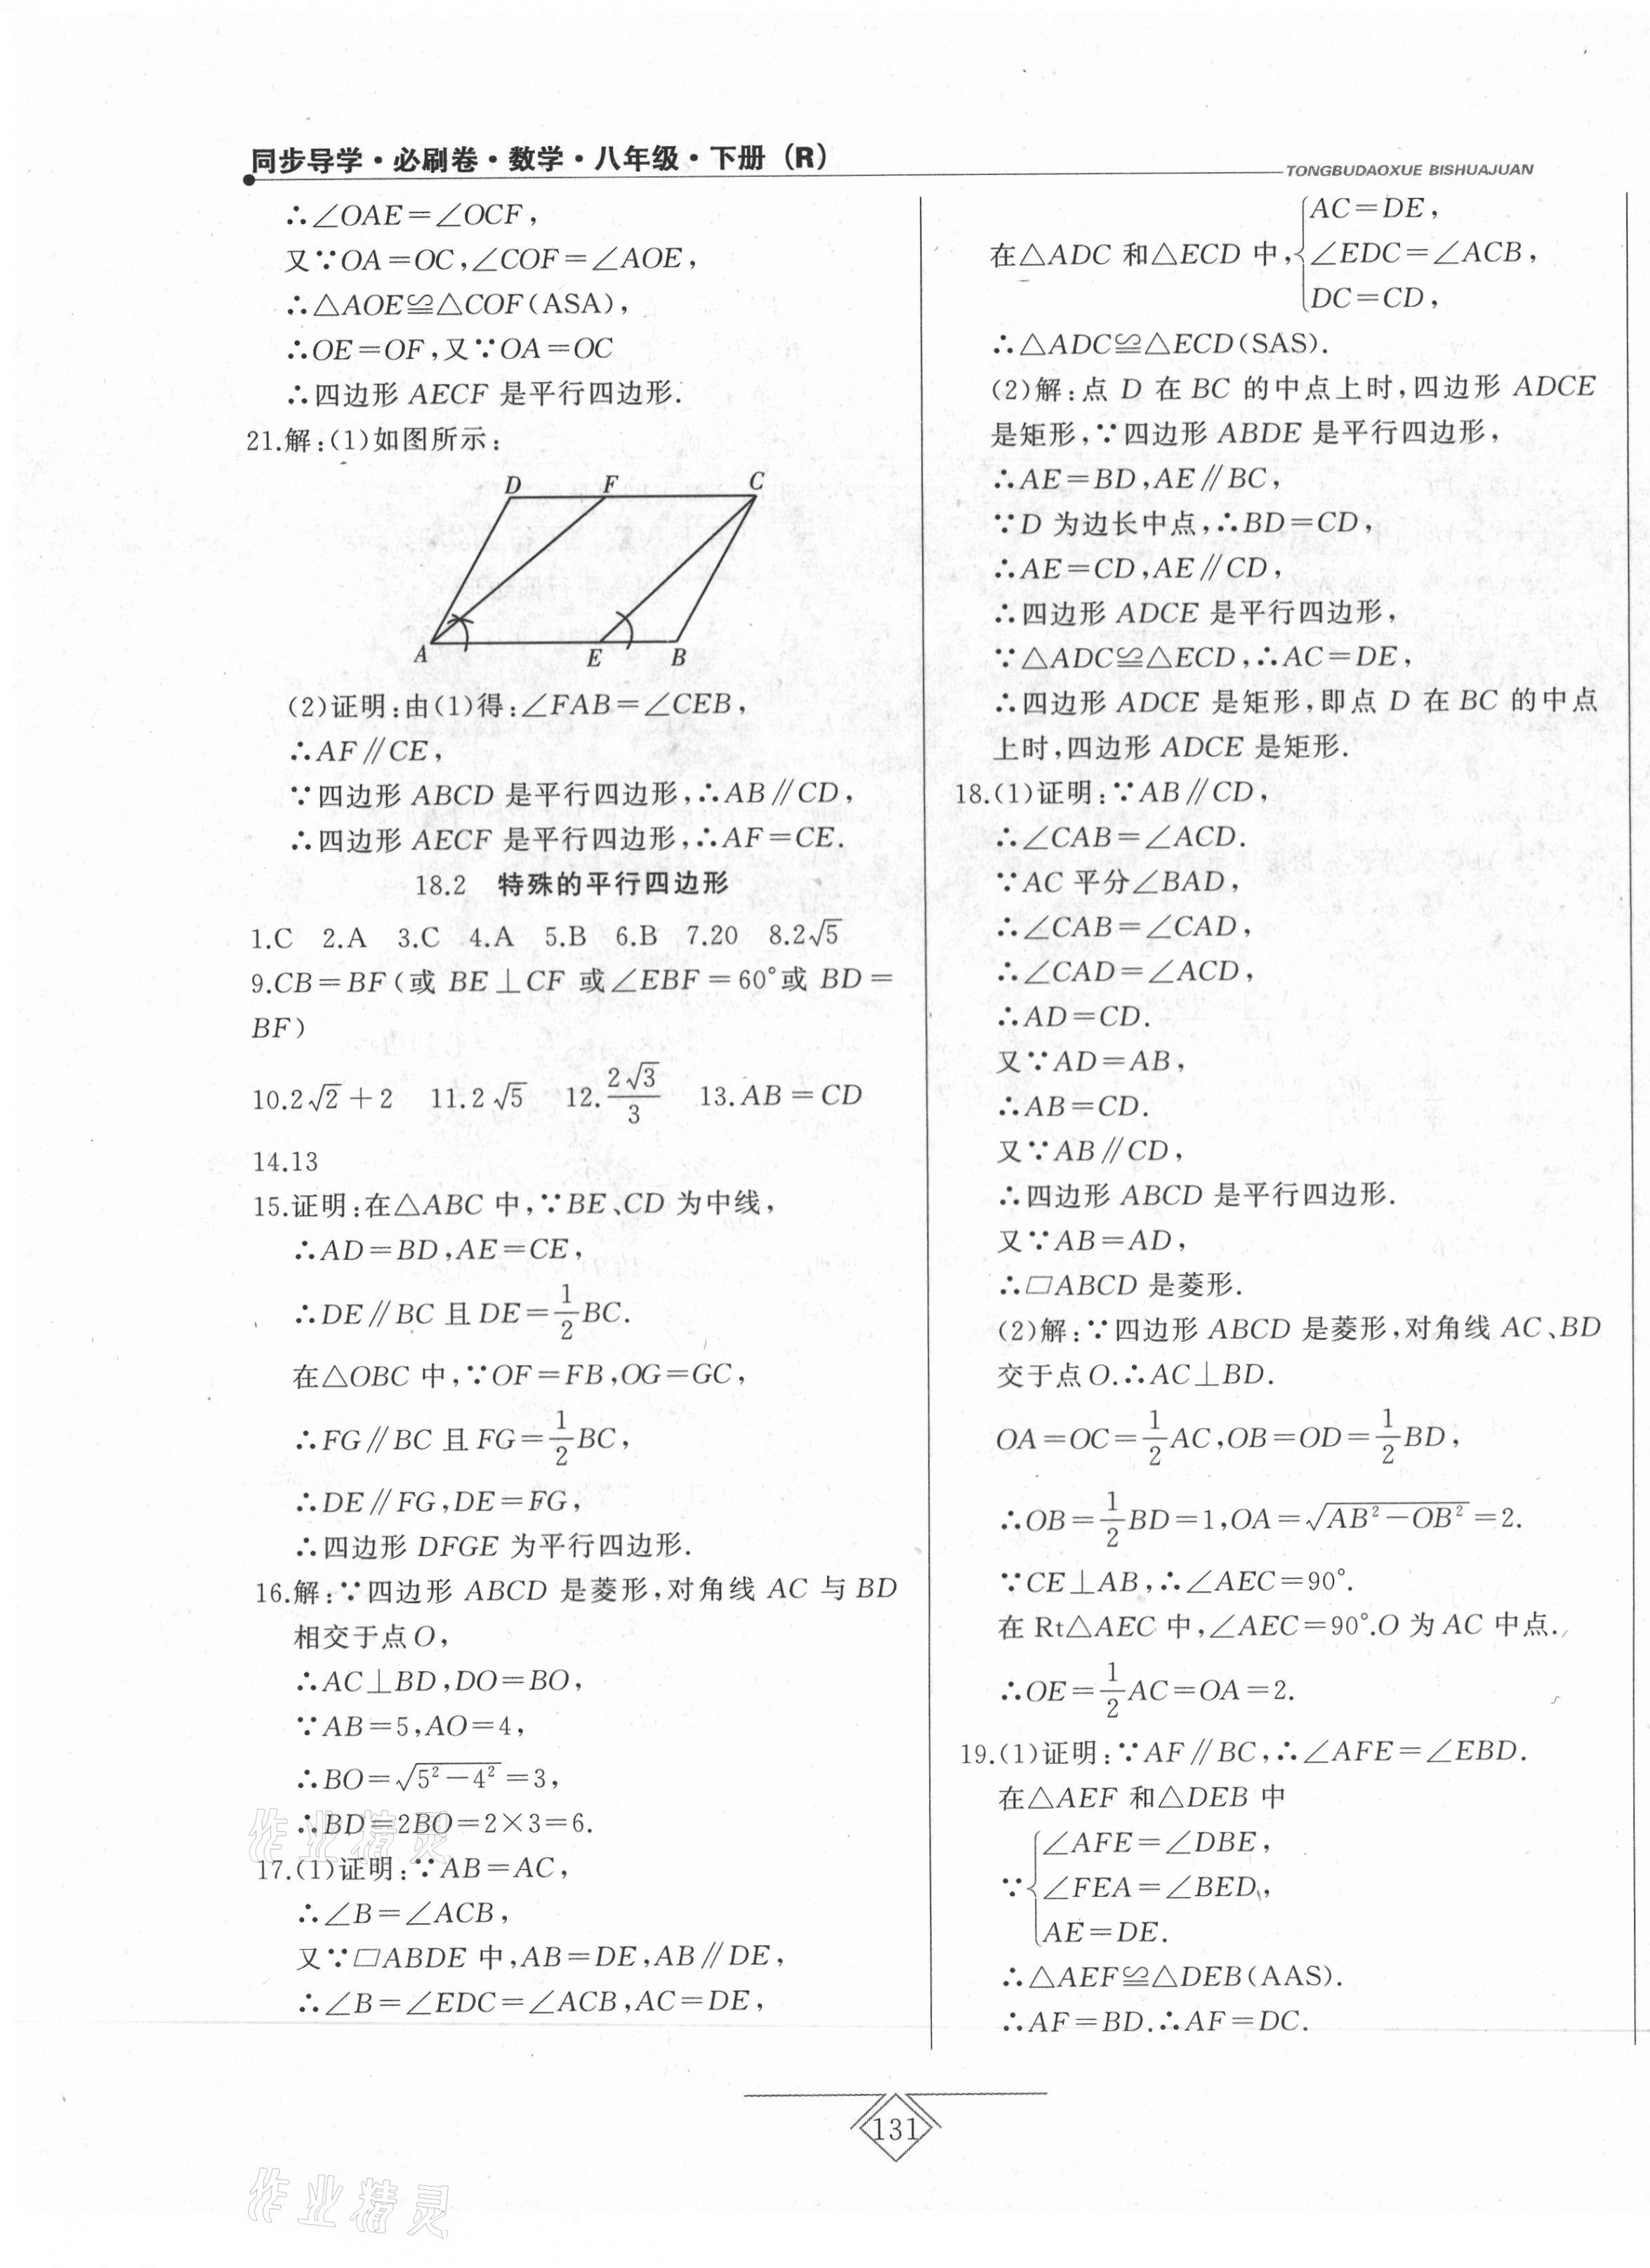 同步导学·必刷卷·数学·八年级·下册(R)
TONGBUDAOXUE BISHUAJUAN
∴∠OAE=∠OCF,
又∵OA=OC,∠COF=∠AOE,
∴△AOE≌△COF(ASA),
∴OE=OF,又∵OA=OC
∴四边形 AECF 是平行四边形.
21.解:(1)如图所示:
D F C
A E B
(2)证明:由(1)得:∠FAB=∠CEB,
∴AF∥CE,
∵四边形 ABCD 是平行四边形,∴AB∥CD,
∴四边形 AECF 是平行四边形,∴AF=CE.
18.2 特殊的平行四边形
1.C 2.A 3.C 4.A 5.B 6.B 7.20 8.2√5
9.CB=BF(或 BE⊥CF 或∠EBF=60°或 BD=
BF)
10.2√2+2 11.2√5 12.2√3/3 13.AB=CD
14.13
15.证明:在△ABC 中,∵BE、CD 为中线,
∴AD=BD,AE=CE,
∴DE∥BC 且 DE=1/2BC.
在△OBC 中,∵OF=FB,OG=GC,
∴FG∥BC 且 FG=1/2BC,
∴DE∥FG,DE=FG,
∴四边形 DFGE 为平行四边形.
16.解:∵四边形 ABCD 是菱形,对角线 AC 与 BD
相交于点 O,
∴AC⊥BD,DO=BO,
∵AB=5,AO=4,
∴BO=√(5²-4²)=3,
∴BD=2BO=2×3=6.
17.(1)证明:∵AB=AC,
∴∠B=∠ACB,
又∵▱ABDE 中,AB=DE,AB∥DE,
∴∠B=∠EDC=∠ACB,AC=DE,
在△ADC 和△ECD 中,{AC=DE,
∠EDC=∠ACB,
DC=CD,
∴△ADC≌△ECD(SAS).
(2)解:点 D 在 BC 的中点上时,四边形 ADCE
是矩形,∵四边形 ABDE 是平行四边形,
∴AE=BD,AE∥BC,
∵D 为边长中点,∴BD=CD,
∴AE=CD,AE∥CD,
∴四边形 ADCE 是平行四边形,
∵△ADC≌△ECD,∴AC=DE,
∴四边形 ADCE 是矩形,即点 D 在 BC 的中点
上时,四边形 ADCE 是矩形.
18.(1)证明:∵AB∥CD,
∴∠CAB=∠ACD.
∵AC 平分∠BAD,
∴∠CAB=∠CAD,
∴∠CAD=∠ACD,
∴AD=CD.
又∵AD=AB,
∴AB=CD.
又∵AB∥CD,
∴四边形 ABCD 是平行四边形.
又∵AB=AD,
∴▱ABCD 是菱形.
(2)解:∵四边形 ABCD 是菱形,对角线 AC、BD
交于点 O.∴AC⊥BD.
OA=OC=1/2AC,OB=OD=1/2BD,
∴OB=1/2BD=1,OA=√(AB²-OB²)=2.
∵CE⊥AB,∴∠AEC=90°.
在 Rt△AEC 中,∠AEC=90°.O 为 AC 中点.
∴OE=1/2AC=OA=2.
19.(1)证明:∵AF∥BC,∴∠AFE=∠EBD.
在△AEF 和△DEB 中
∵{∠AFE=∠DBE,
∠FEA=∠BED,
AE=DE.
∴△AEF≌△DEB(AAS).
∴AF=BD.∴AF=DC.
131
作业精灵
作业精灵